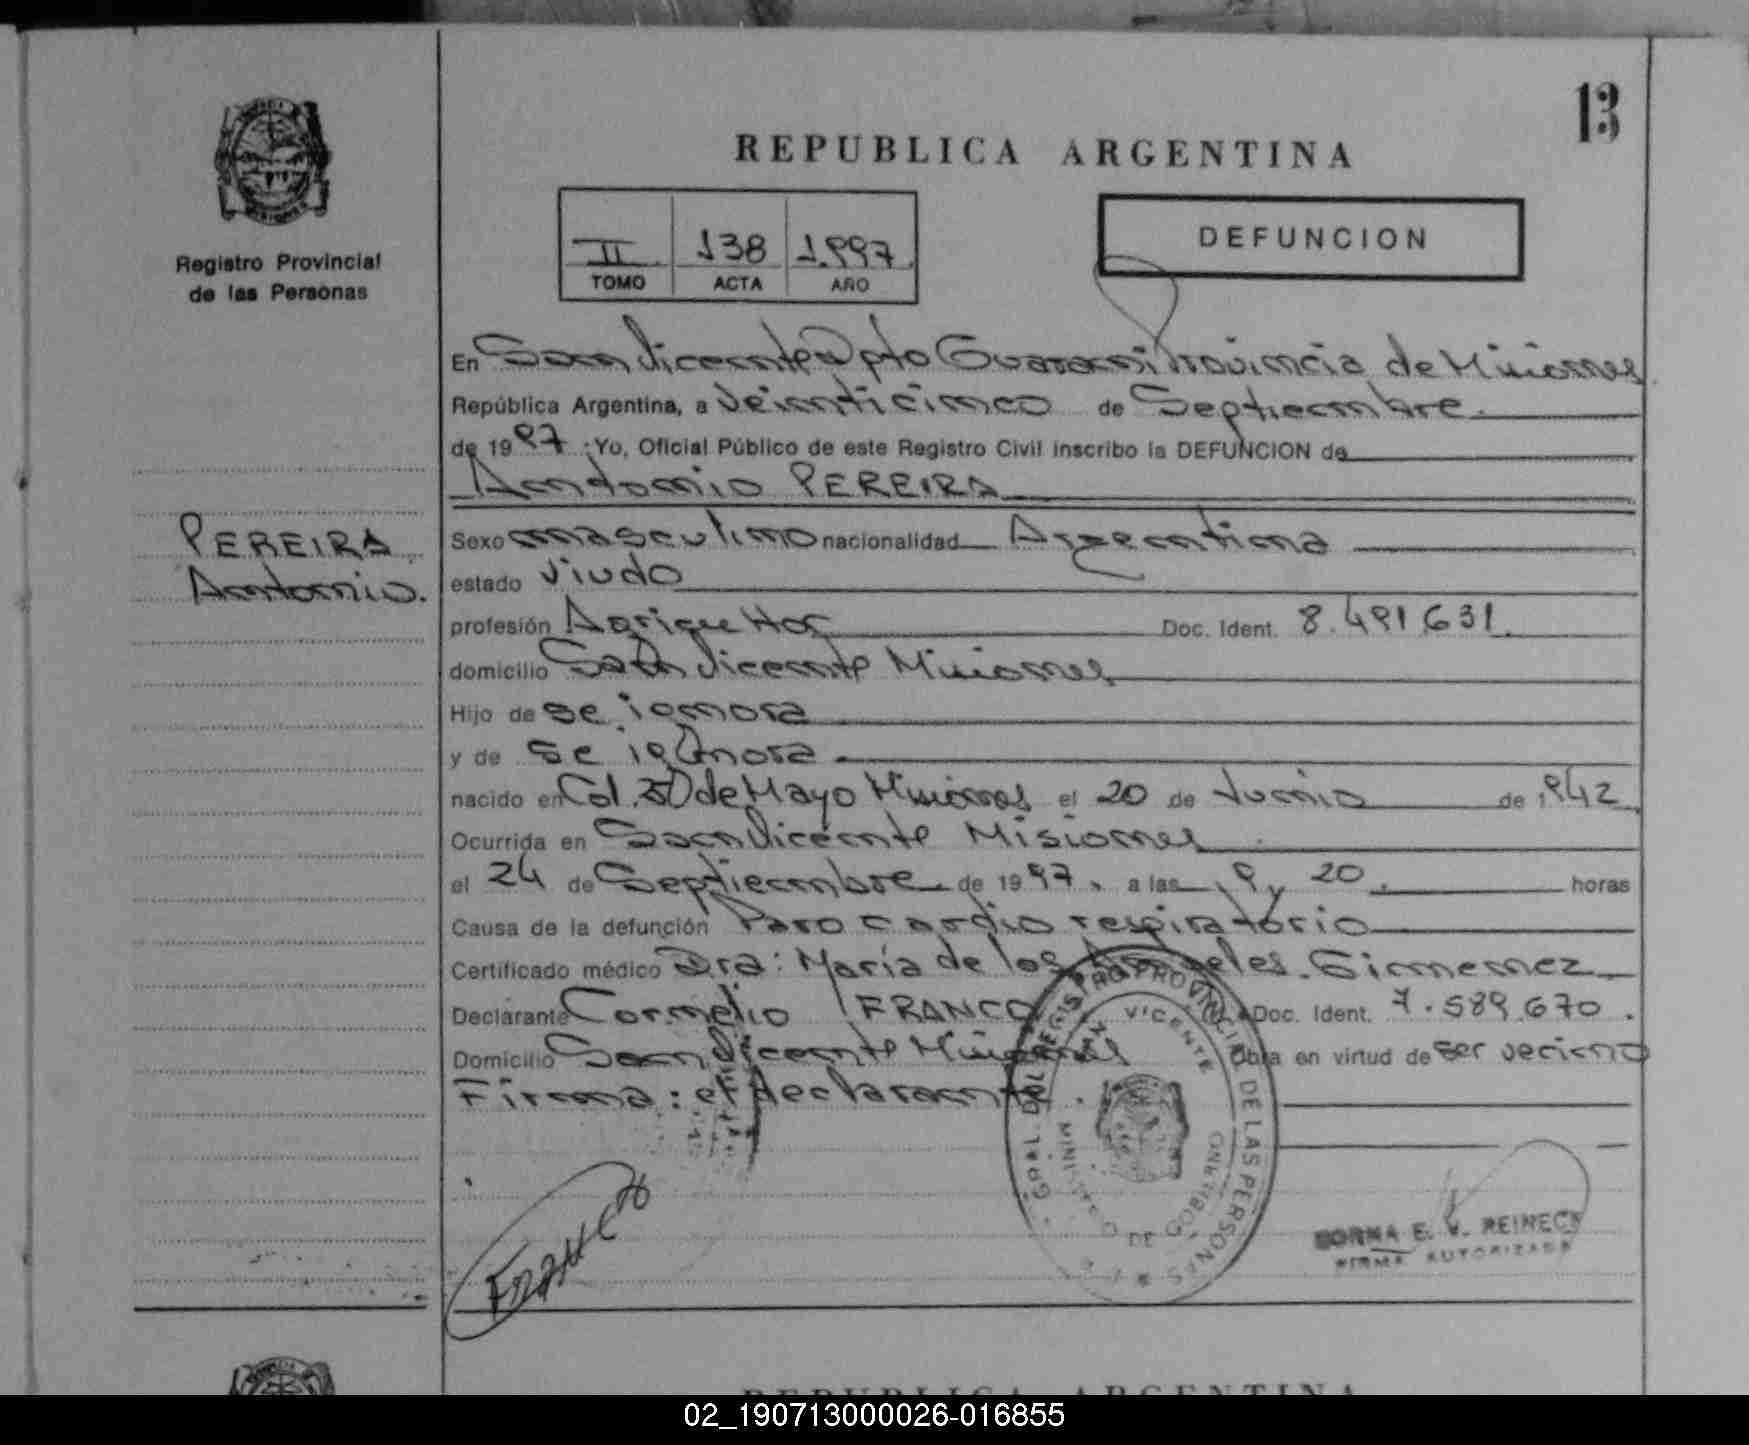 13
REPUBLICA ARGENTINA
II 138 1.997
TOMO ACTA AÑO
DEFUNCION
Registro Provincial
de las Personas
En San Vicente Dpto Guaraní Provincia de Misiones
República Argentina, a Veinticinco de Septiembre
de 1997 Yo, Oficial Público de este Registro Civil inscribo la DEFUNCION de
Antonio PEREIRA
PEREIRA
Antonio.
Sexo masculino nacionalidad Argentina
estado Viudo
profesión Doc. Ident. 8.491.631.
domicilio San Vicente Misiones
Hijo de se ignora
y de se ignora
nacido en Col. de Mayo Misiones el 20 de Junio de 1942
Ocurrida en San Vicente Misiones
el 24 de Septiembre de 1997, a las 9 y 20. horas
Causa de la defunción Paro cardio respiratorio
Certificado médico Dra: María de los Angeles Gimenez
Declarante Cornelio FRANCO Doc. Ident. 7.589.670.
Domicilio San Vicente Misiones Obra en virtud de ser vecino
Firma: el declarante.
GRAL. DEL REGISTRO PROVINCIAL DE LAS PERSONAS
SAN VICENTE
MINISTERIO DE GOBIERNO
FRANCO
NORMA E. V. REINECK
FIRMA AUTORIZADA
REPUBLICA ARGENTINA
02_190713000026-016855